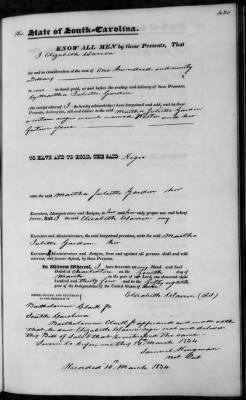 The State of South-Carolina.
KNOW ALL MEN by these Presents, That
I Elizabeth Warren
for and in consideration of the sum of One hundred and
Dollars
to in hand paid, at and before the sealing and delivery of these Presents,
by Martha Juliette Gordon
(the receipt whereof I do hereby acknowledge) have bargained and sold, and by these
Presents, do bargain, sell and deliver to the said Martha Juliette Gordon
a certain negro named Hester and her
future issue
TO HAVE AND TO HOLD, THE SAID Negro
unto the said Martha Juliette Gordon her
Executors, Administrators and Assigns, to her and her only proper use and behoof
forever. And I the said Elizabeth Warren my
Executors and Administrators, the said bargained premises, unto the said Martha
Juliette Gordon her
Executors, Administrators and Assigns, from and against all persons shall and will
warrant, and forever defend, by these Presents.
In Witness Whereof, I have hereunto set my Hand and Seal
Dated at Charleston on the fourth day of
March in the year of our Lord, one thousand eight
hundred and thirty four and in the fifty eighth
year of the Independence of the United States of America.
Elizabeth Warren (LS)
SIGNED, SEALED, AND DELIVERED
IN THE PRESENCE OF
Bartholomew Clark Jr.
South Carolina
Bartholomew Clark Jr appeared and made oath
that he saw Elizabeth Warren sign seal and deliver
this Bill of Sale &amp; that he witnessed the same
Sworn to before me this 14 March 1834
Samuel Kingman
Not. Pub
Recorded 14th March 1834